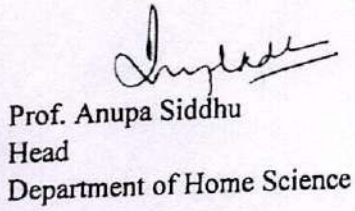 Prof. Anupa Siddhu
Head
Department of Home Science